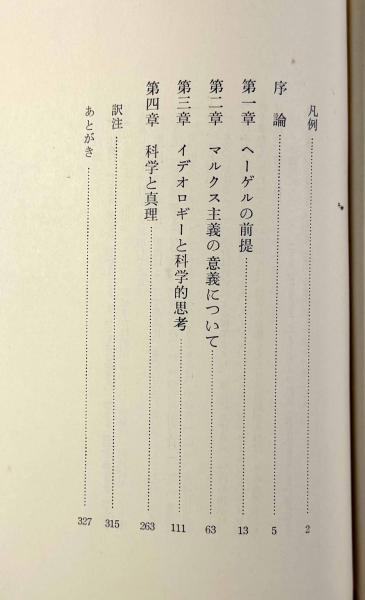 凡例……2
序論……5
第一章 ヘーゲルの前提……13
第二章 マルクス主義の意義について……63
第三章 イデオロギーと科学的思考……111
第四章 科学と真理……263
訳注……315
あとがき……327